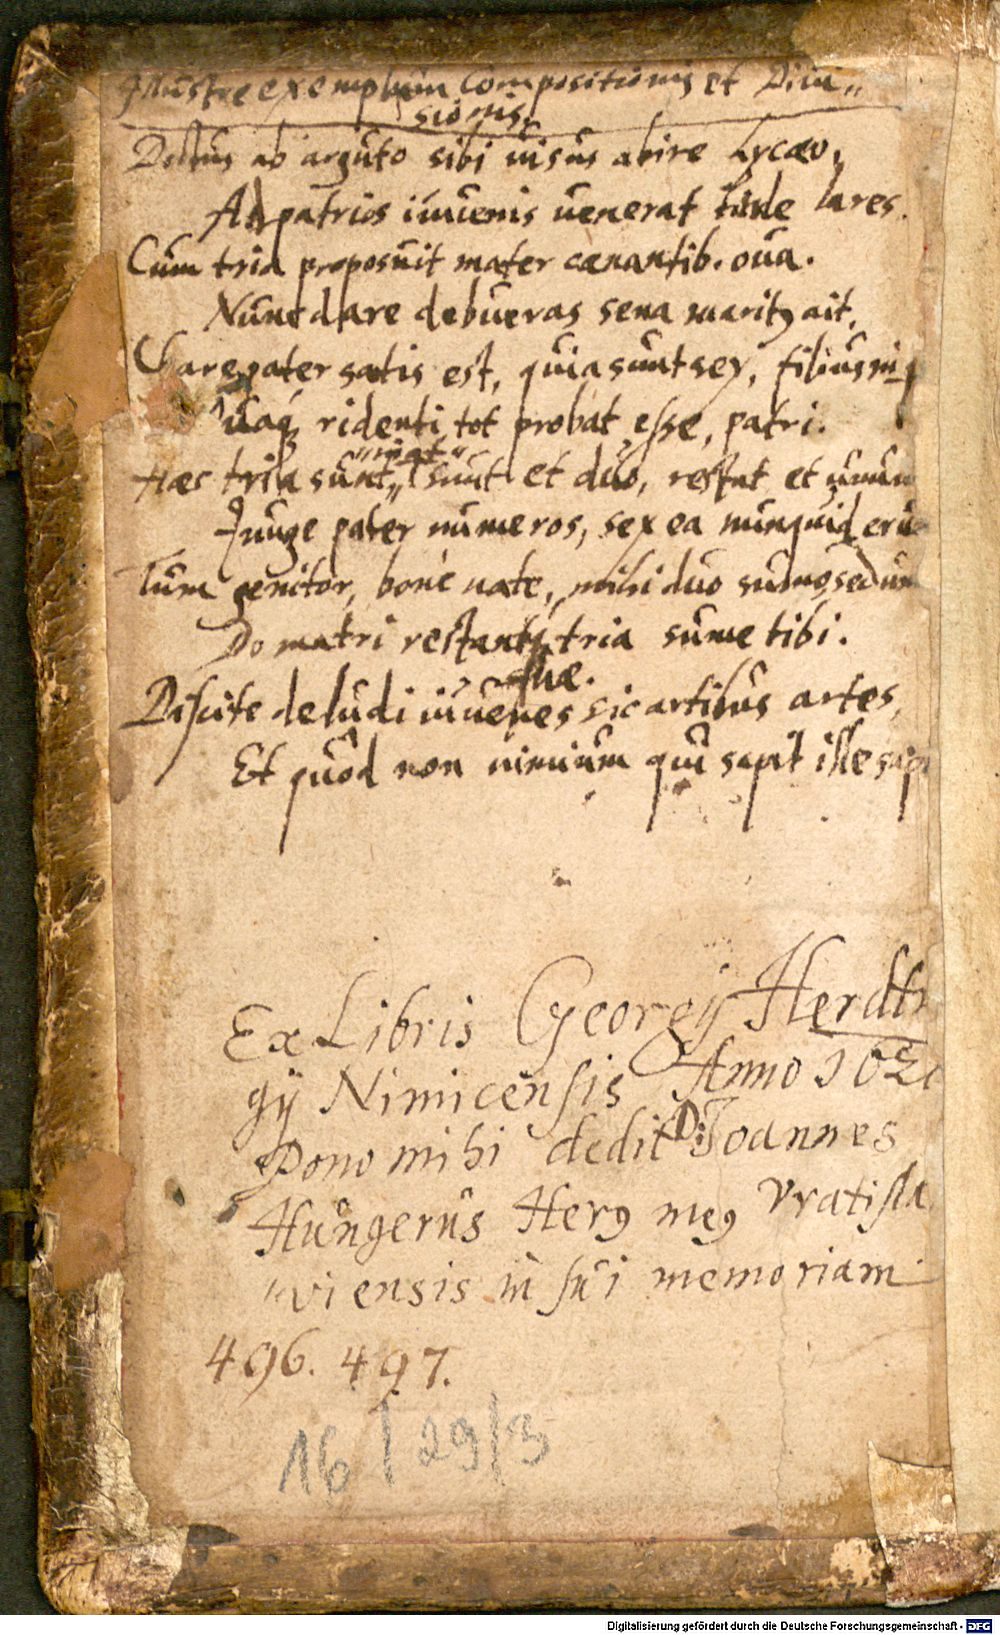 Illustre exemplum Compositionis et Diui„
sionis.
Doctus ab arguto sibi uisus abire Lycæo,
Ad patrios iuuenis uenerat inde lares.
Cum tria proposuit mater cænantib. oua.
Nunc dare debueras sena maritꝰ ait.
Chare pater satis est, quia sunt sex, filius
ridenti tot probat esse, patri.
„inqt„
Hæc tria sunt„ sunt et duo, restat et unum
Junge pater numeros, sex ea nunquid
Tum genitor, bone nate, mihi duo sumo, sed un
Do matri restant tria sume tibi.
suæ.
Discite deludi iuuenes sic artibus artes,
Et quod non nimium qui sapit ille sapi
Ex Libris Georgij Herdti
gij Nimicensis Anno 162
Dono mihi dedit D: Joannes
Hungerus Herꝰ meꝰ Vratisla
„viensis in sui memoriam
496. 497.
16/29/3
Digitalisierung gefördert durch die Deutsche Forschungsgemeinschaft - DFG